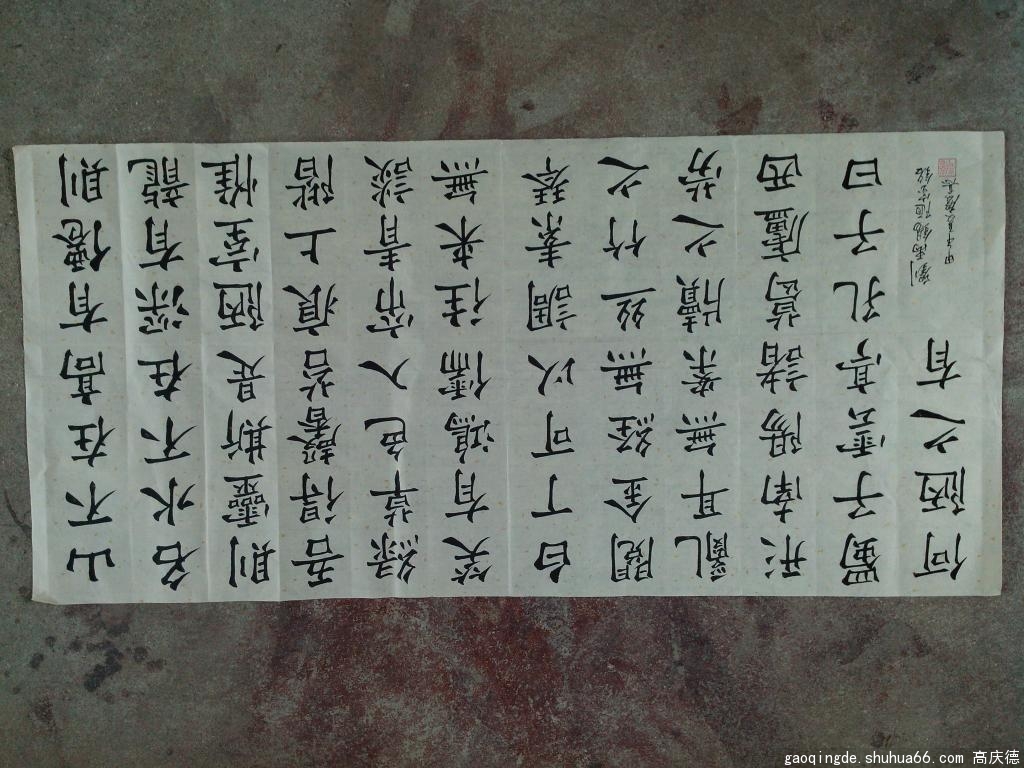 山不在高有德則
名水不在深有龍
則靈斯是陋室惟
吾得馨苔痕上階
綠草色入帘青談
笑有鴻儒往來無
白丁可以調素琴
閱金經無絲竹之
亂耳無案牘之劳
形南陽諸葛廬西
蜀子雲亭孔子曰
何陋之有
劉禹錫陋室銘
甲午夏慶
gaoqingde.shuhua66.com 高庆德